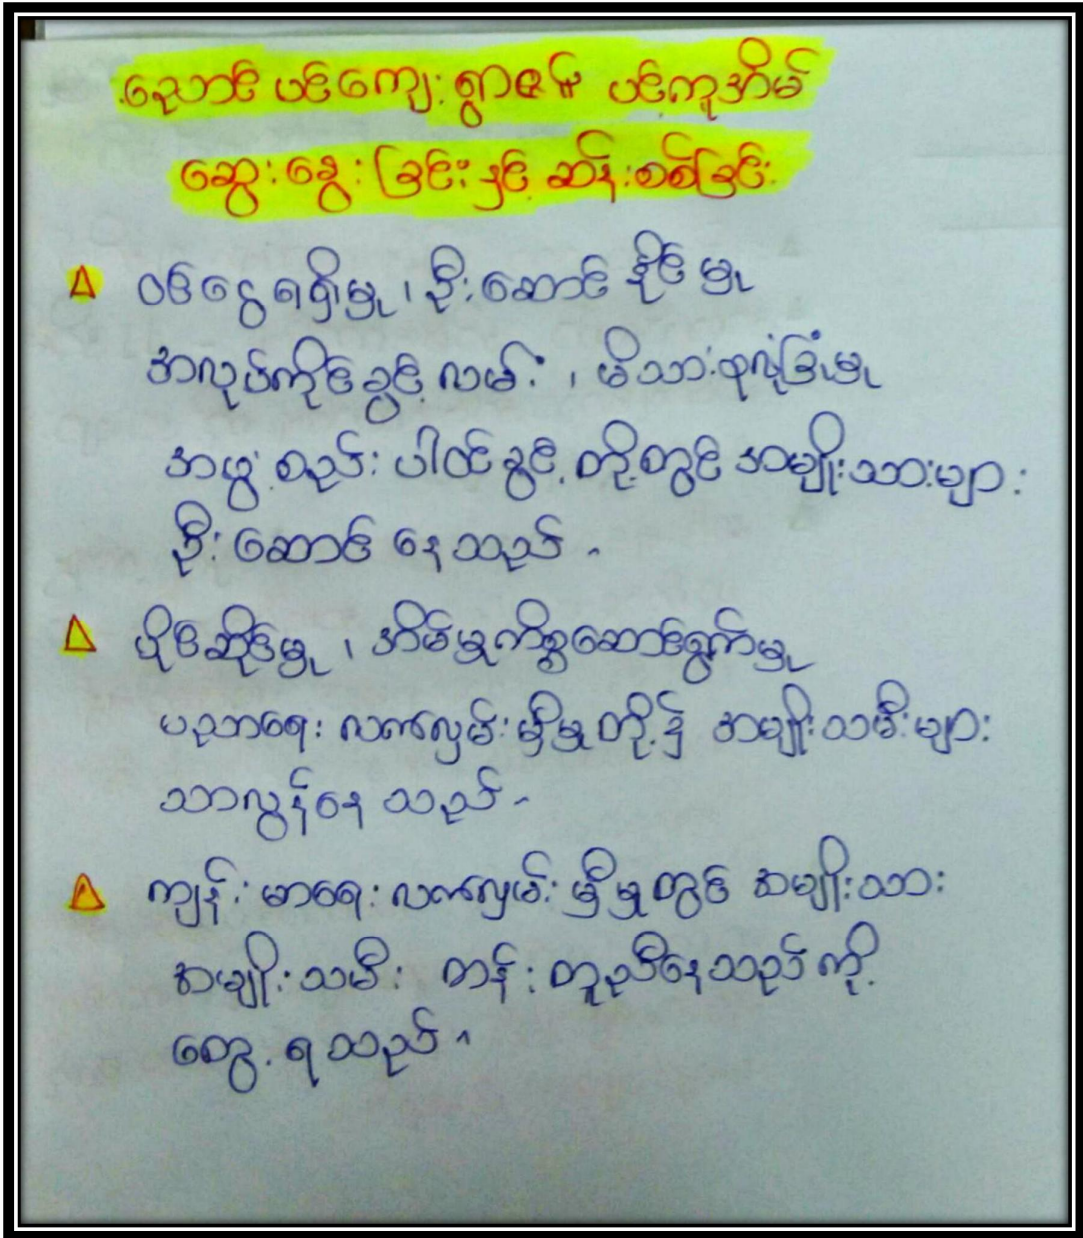 ညောင်ပင်ကျေးရွာဇမ် ပင့်ကူအိမ်
ဆွေးနွေးခြင်းနှင့် ဆန်းစစ်ခြင်း
ဝင်ငွေရရှိမှု ၊ ဦးဆောင်နိုင်မှု
အလုပ်ကိုင်ခွင့်လမ်း ၊ မိသားစုလုံခြုံမှု
အဖွဲ့စည်းပါဝင်ခွင့်တို့တွင် အမျိုးသားများ
ဦးဆောင်နေသည်။
ပိုင်ဆိုင်မှု ၊ အိမ်မှုကိစ္စဆောင်ရွက်မှု
ပညာရေးလက်လှမ်းမှီမှုတို့၌ အမျိုးသမီးများ
သာလွန်နေသည်။
ကျန်းမာရေးလက်လှမ်းမှီမှုတွင် အမျိုးသား
အမျိုးသမီး တန်းတူညီနေသည်ကို
တွေ့ရသည်။